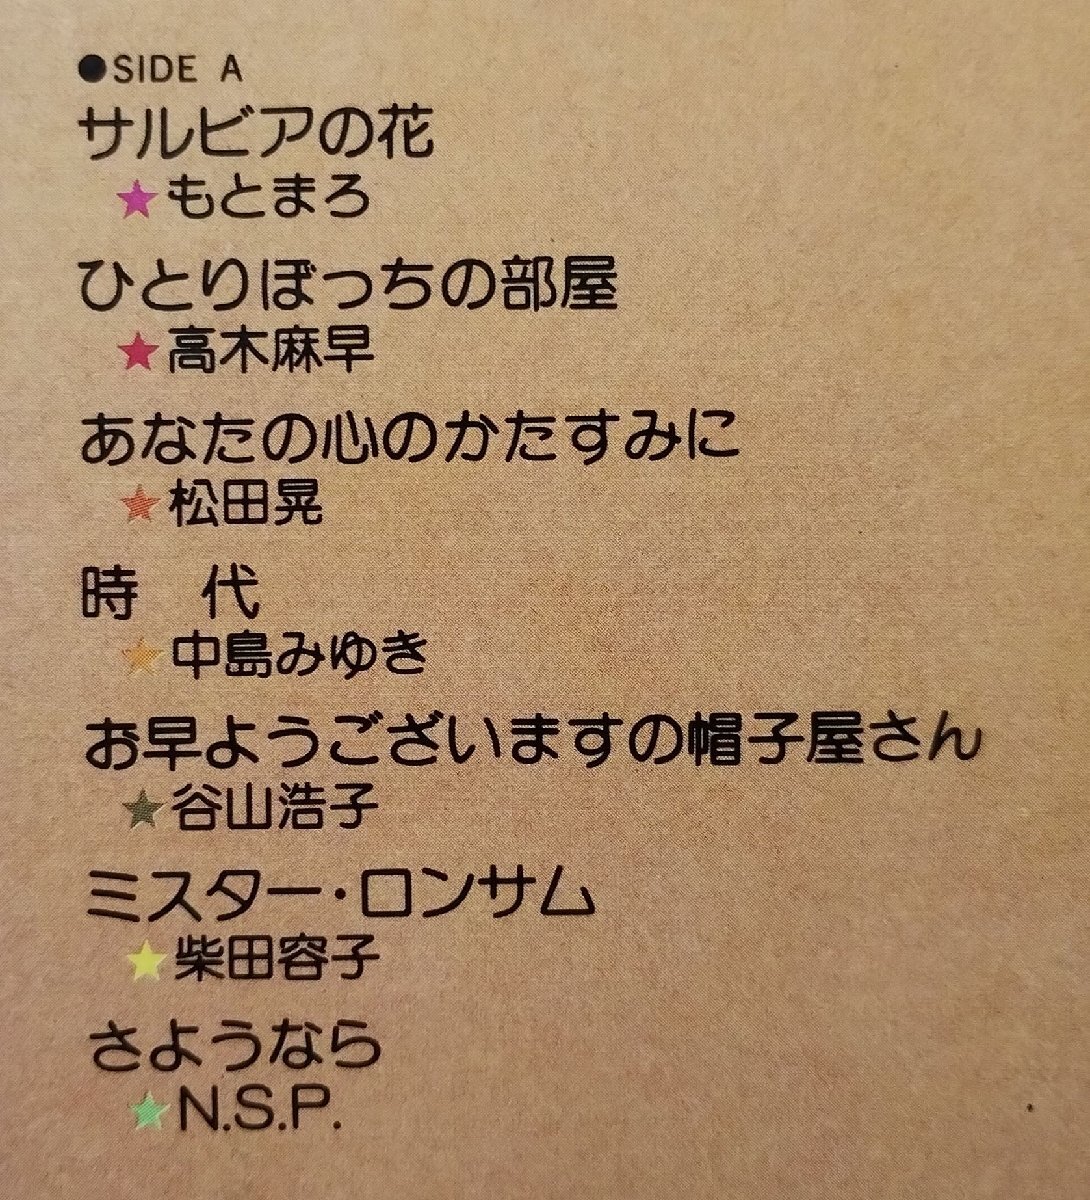 ●SIDE A
サルビアの花
★もとまろ
ひとりぼっちの部屋
★高木麻早
あなたの心のかたすみに
★松田晃
時　代
★中島みゆき
お早ようございますの帽子屋さん
★谷山浩子
ミスター・ロンサム
★柴田容子
さようなら
★N.S.P.